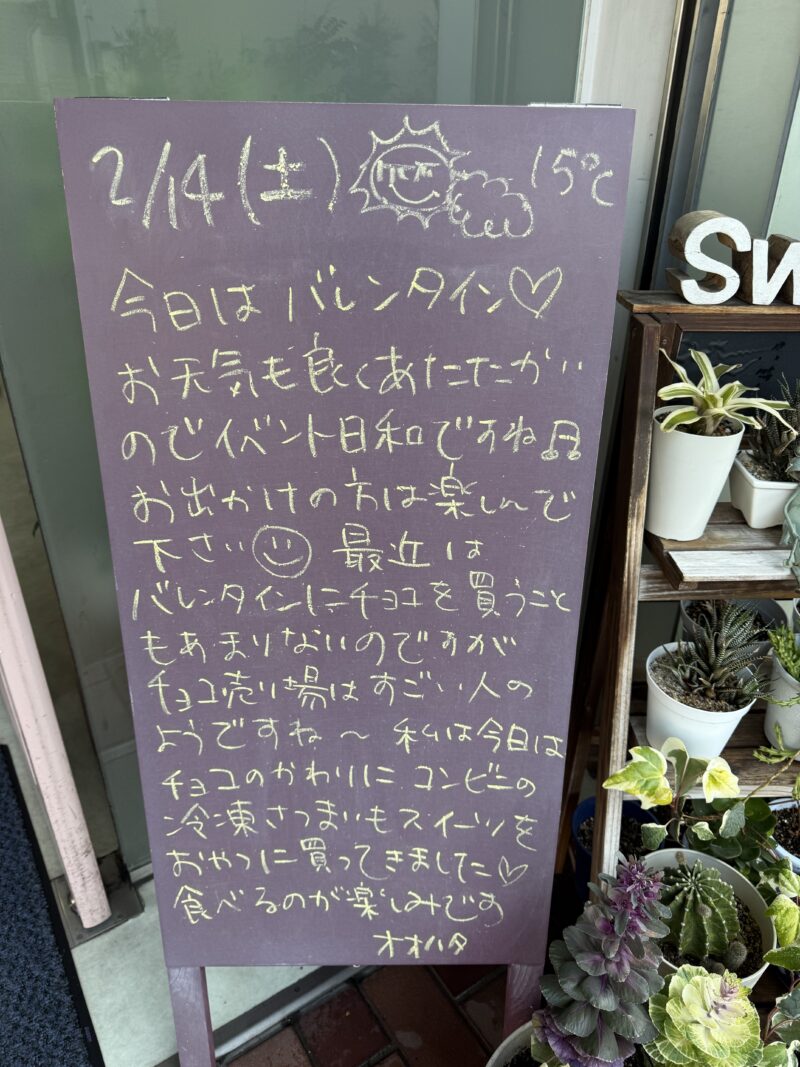 2/14(土) 15℃
今日はバレンタイン♡
お天気も良くあたたかい
のでイベント日和ですね♫
お出かけの方は楽しんで
下さい☺ 最近は
バレンタインにチョコを買うこと
もあまりないのですが
チョコ売り場はすごい人の
ようですね〜 私は今日は
チョコのかわりにコンビニの
冷凍さつまいもスイーツを
おやつに買ってきました♡
食べるのが楽しみです
オオハタ
Sw